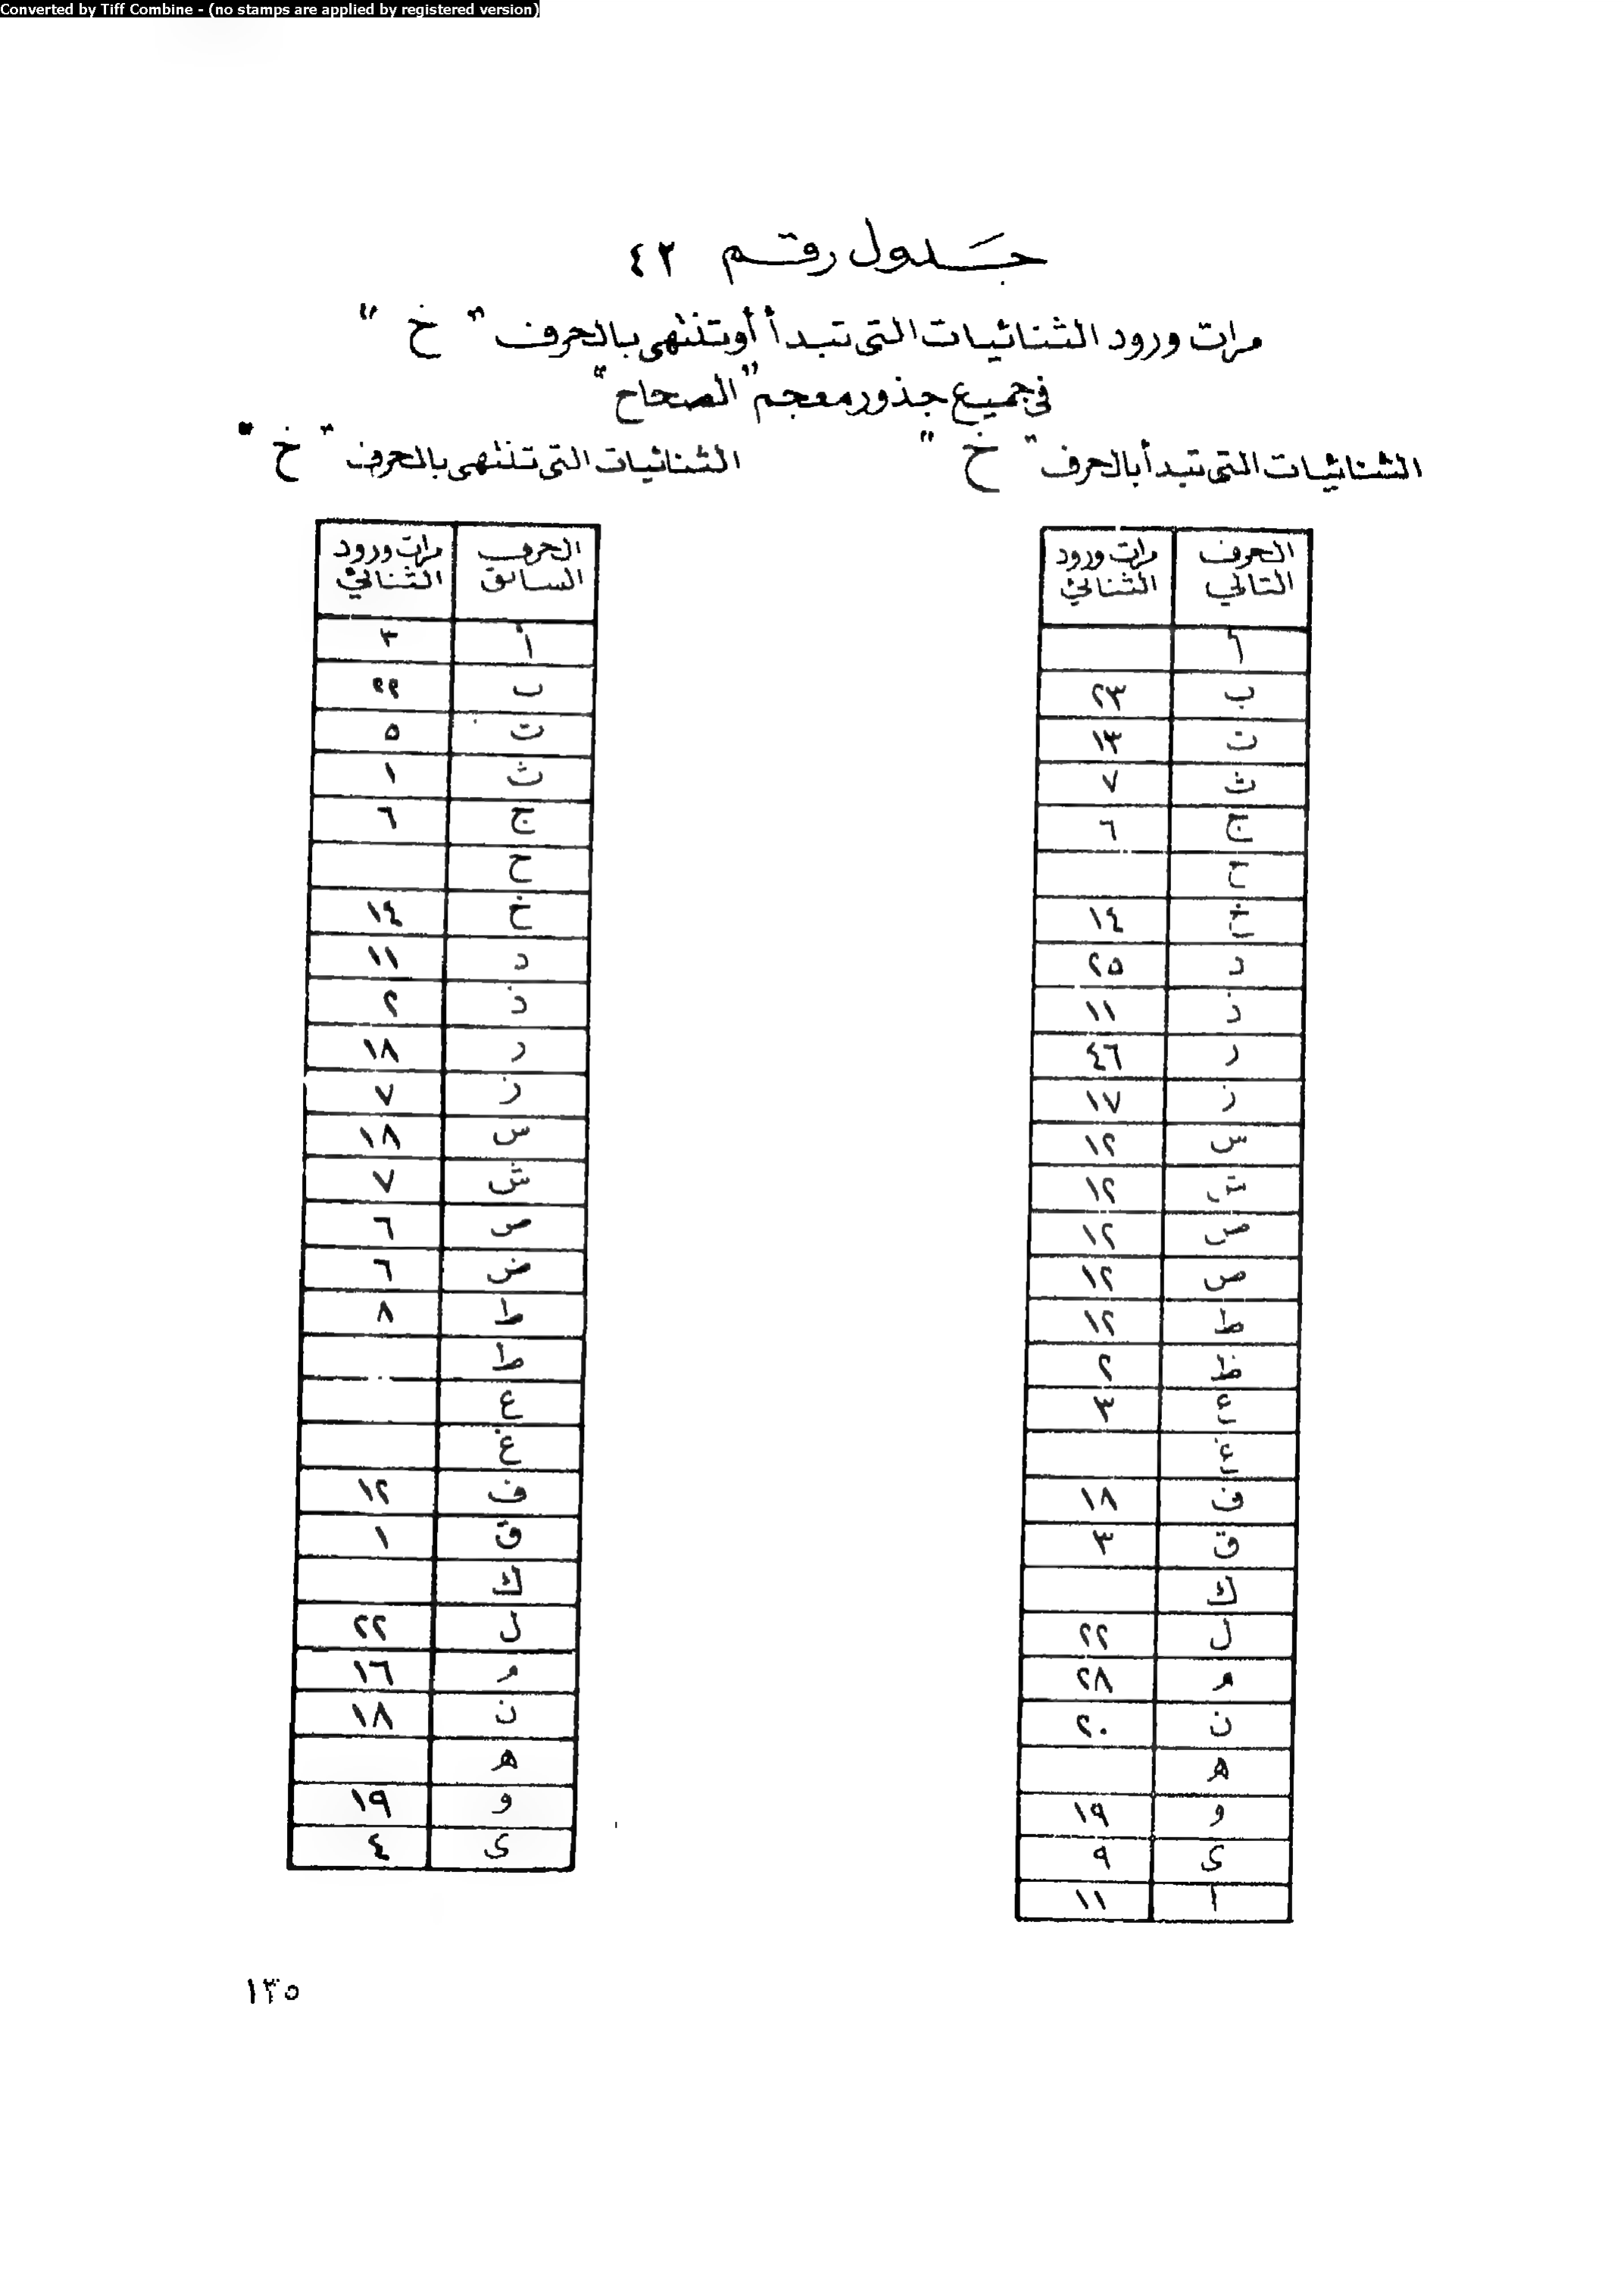 Converted by Tiff Combine - (no stamps are applied by registered version)
جدول رقم ٤٢
مرات ورود الثنائيات التى تبدأ أو تنتهى بالحرف " خ "
فى جميع جذور معجم "الصحاح"
الثنائيات التى تبدأ بالحرف " خ "
الحرف التالي | مرات ورود الثنائي
أ
ب ٢٣
ت ١٣
ث ٧
ج ٦
ح
خ ١٤
د ٢٥
ذ ١١
ر ٤٦
ز ١٧
س ١٢
ش ١٢
ص ١٢
ض ١٢
ط ١٢
ظ ٢
ع ٣
غ
ف ١٨
ق ٣
ك
ل ٢٢
م ٢٨
ن ٢٠
ه
و ١٩
ى ٩
ا ١١
الثنائيات التى تنتهى بالحرف " خ "
الحرف السابق | مرات ورود الثنائي
أ ٣
ب ٢٢
ت ٥
ث ١
ج ٦
ح
خ ١٤
د ١١
ذ ٢
ر ١٨
ز ٧
س ١٨
ش ٧
ص ٦
ض ٦
ط ٨
ظ
ع
غ
ف ١٢
ق ١
ك
ل ٢٢
م ١٦
ن ١٨
ه
و ١٩
ى ٤
١٣٥